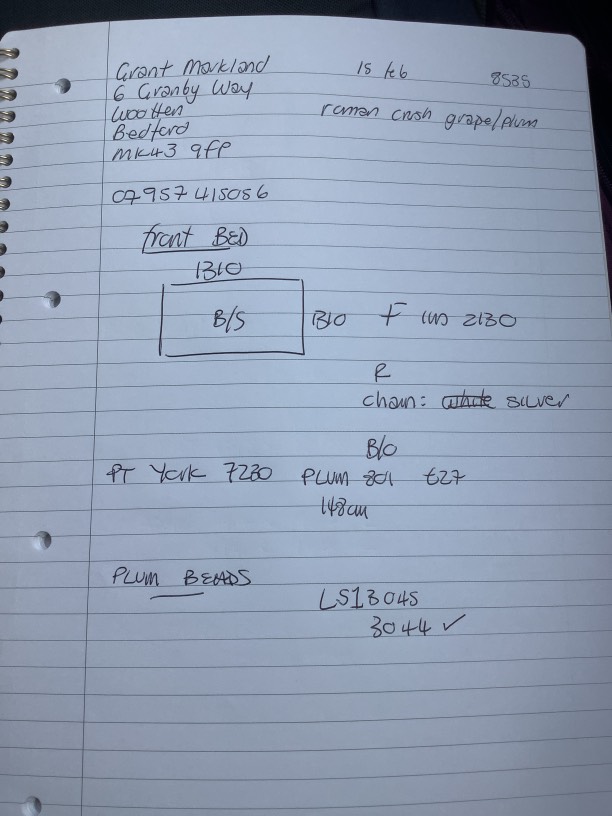 Grant Markland
15 feb
8535
6 Granby Way
Wootten
roman crush grape/plum
Bedford
MK43 9FP
07957 415056
front BED
1310
B/S
1310
F
2130
R
chain: white silver
B/O
PT York 7230
PLUM 801 £27
148cm
PLUM BEADS
LS13045
3044 ✓